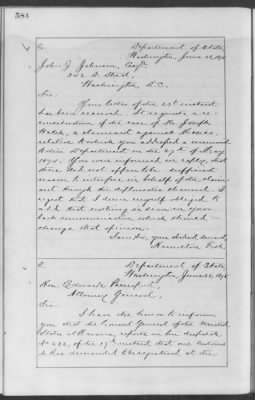 584
Department of State,
Washington, June 28, 1876
John J. Johnson, Esqr.
Street,
Washington, D.C.
Sir:
Your letter of the 23d instant
has been received. It requests a re-
consideration of the case of Mr. Joseph
Walsh, a claimant against Mexico,
relative to which you addressed a memorial
to this Department on the 27th of May
1875. You were informed in reply, that
there did not appear to be sufficient
reason to interfere on behalf of the claim-
ant through the diplomatic channel. I
regret that I deem myself obliged to
add that nothing is seen in your
last communication which should
change that opinion.
I am Sir, your obedient servant,
Hamilton Fish.
Department of State,
Washington, June 28, 1876
Hon. Edwards Pierrepont,
Attorney General.
Sir:
I have the honor to inform
you that the Consul General of the United
States at reports in his despatch
No. of the 17th instant that one
has demanded the at the